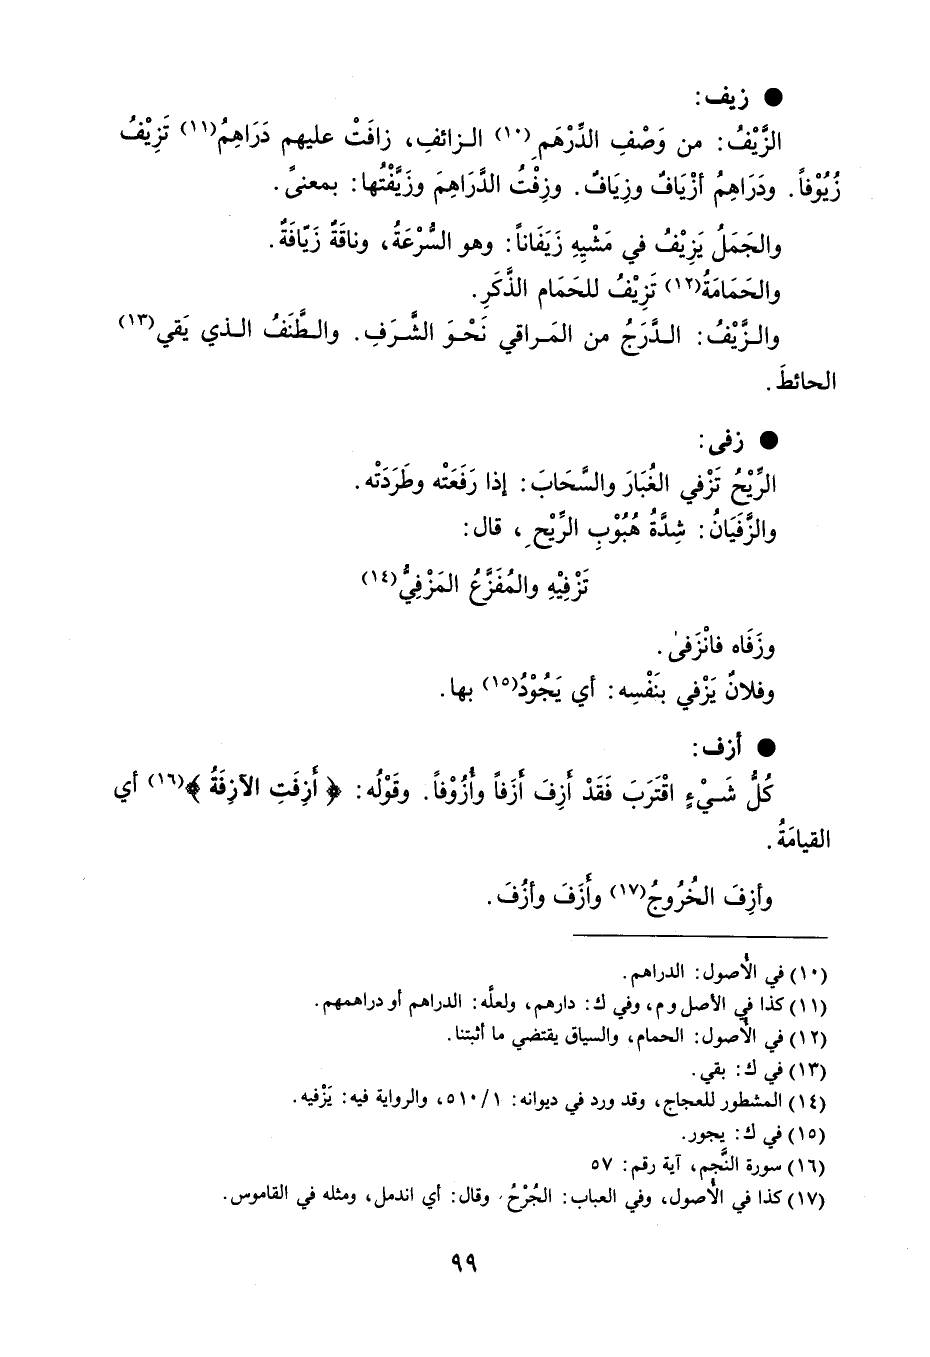 ● زيف:
الزَّيْفُ: من وَصْفِ الدِّرْهَمِ(١٠) الـزائفِ، زافَتْ عليهم دَرَاهِمُ(١١) تَزِيْفُ
زُيُوْفاً. ودَرَاهِمُ أزْيَافٌ وزِيَافٌ. وزِفْتُ الدَّرَاهِمَ وزَيَّفْتُها: بمعنىً.
والجَمَلُ يَزِيْفُ في مَشْيِهِ زَيَفَاناً: وهو السُّرْعَةُ، وناقَةٌ زَيّافَةٌ.
والحَمَامَةُ(١٢) تَزِيْفُ للحَمَام الذَّكَرِ.
والـزَّيْفُ: الـدَّرَجُ من المَـراقي نَحْـوَ الشَّـرَفِ. والـطَّنَفُ الـذي يَقي(١٣)
الحائطَ.
● زفى:
الرِّيْحُ تَزْفي الغُبَارَ والسَّحَابَ: إذا رَفَعَتْه وطَرَدَتْه.
والزَّفَيَانُ: شِدَّةُ هُبُوْبِ الرِّيْحِ، قال:
تَزْفِيْهِ والمُفَزَّعُ المَزْفِيُّ(١٤)
وزَفَاه فانْزَفىٰ.
وفلانٌ يَزْفي بنَفْسِه: أي يَجُوْدُ(١٥) بها.
● أزف:
كُلُّ شَـيْءٍ اقْتَرَبَ فَقَدْ أَزِفَ أَزَفاً وأُزُوْفاً. وقَوْلُه: ﴿ أَزِفَتِ الآزِفَةُ ﴾(١٦) أي
القيامَةُ.
وأزِفَ الخُرُوجُ(١٧) وأَزَفَ وأزُفَ.
(١٠) في الأُصول: الدراهم.
(١١) كذا في الأصل و م، وفي ك: دارهم، ولعلَّه: الدراهم أو دراهمهم.
(١٢) في الأُصول: الحمام، والسياق يقتضي ما أثبتنا.
(١٣) في ك: بقي.
(١٤) المشطور للعجاج، وقد ورد في ديوانه: ٥١٠/١، والرواية فيه: يَزْفيه.
(١٥) في ك: يجور.
(١٦) سورة النَّجم، آية رقم: ٥٧
(١٧) كذا في الأُصول، وفي العباب: الجُرْحُ، وقال: أي اندمل، ومثله في القاموس.
٩٩